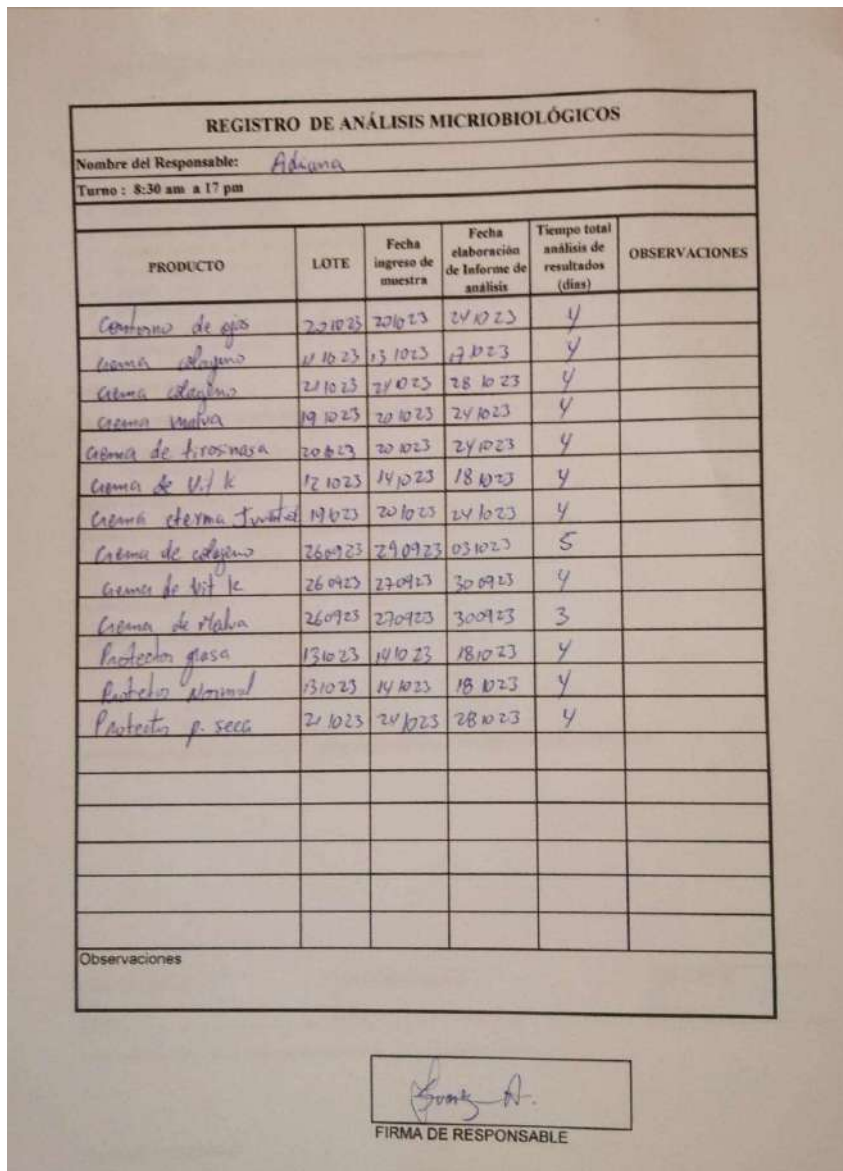 REGISTRO DE ANÁLISIS MICRIOBIOLÓGICOS
Nombre del Responsable: Adiana
Turno : 8:30 am a 17 pm
PRODUCTO LOTE Fecha ingreso de muestra Fecha elaboración de Informe de análisis Tiempo total análisis de resultados (dias) OBSERVACIONES
Contorno de ojos 201023 201023 241023 4
Crema colageno 111023 131023 171023 4
Crema colageno 211023 241023 281023 4
Crema malva 191023 201023 241023 4
Crema de tirosinasa 201023 201023 241023 4
Crema de Vit k 121023 141023 181023 4
Crema eterma 191023 201023 241023 4
Crema de colageno 260923 290923 031023 5
Crema de vit k 260923 270923 300923 4
Crema de Malva 260923 270923 300923 3
Protector grasa 131023 141023 181023 4
Protector Normal 131023 141023 181023 4
Protector p. seca 211023 241023 281023 4
Observaciones
A.
FIRMA DE RESPONSABLE